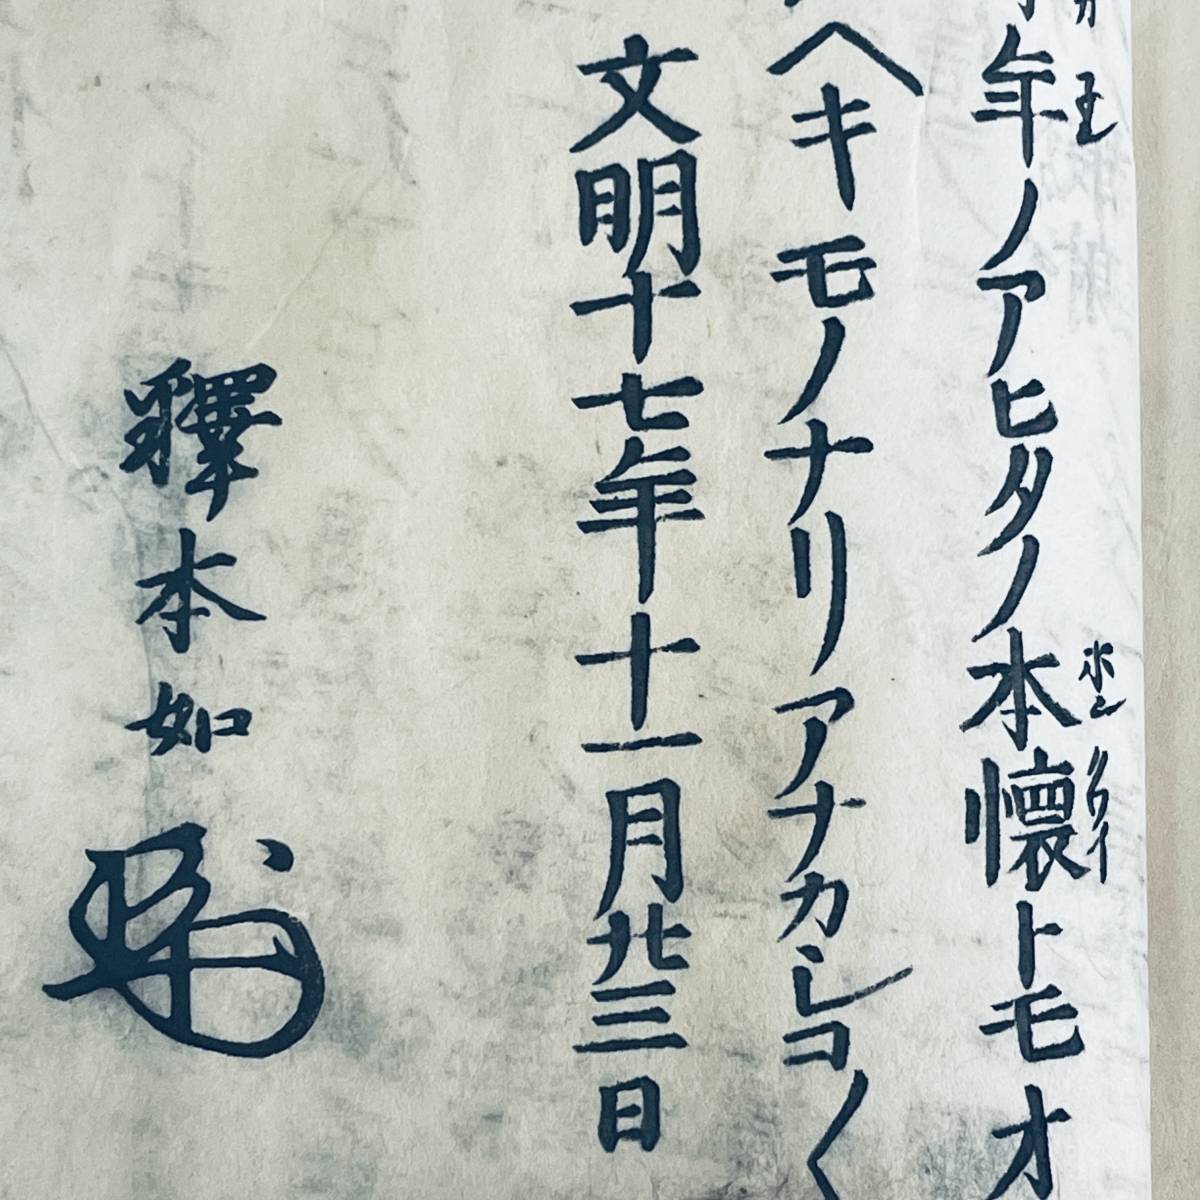 年ノアヒタノ本懐トモオ
ホンクワイ
ヘキモノナリアナカシコ〱
文明十七年十一月廿三日
釋本如